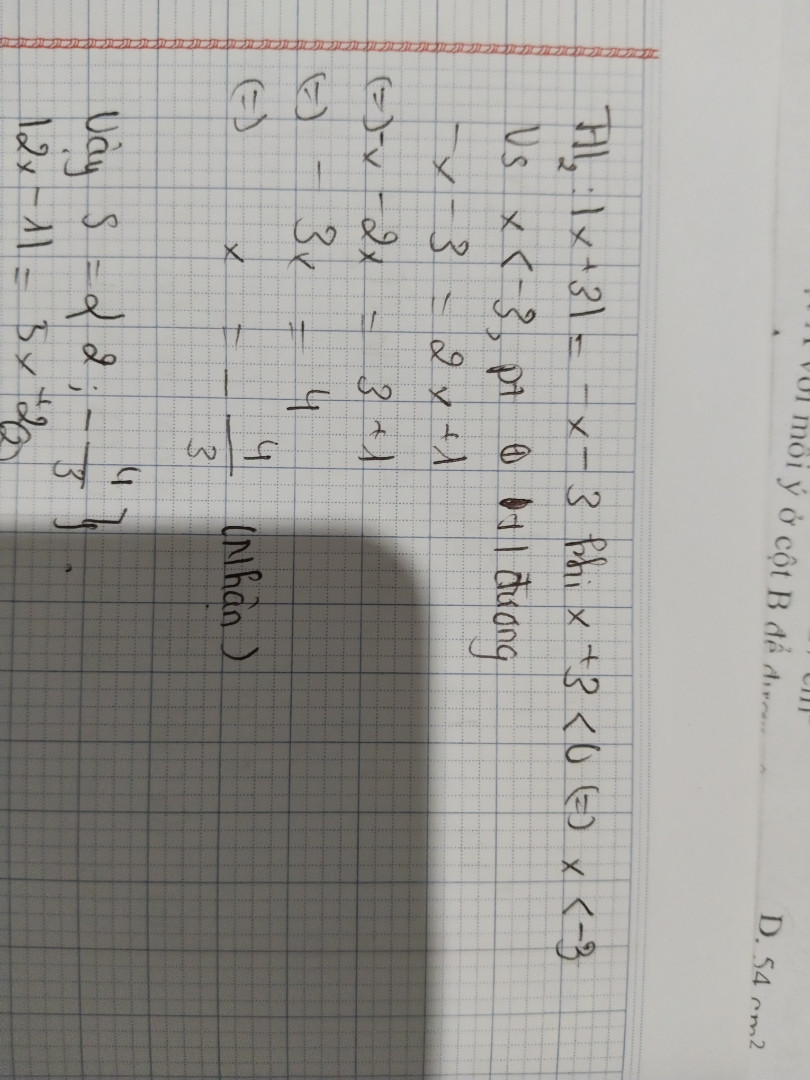 với mỗi ý ở cột B để
D. 54 cm²
TH₂: |x+3| = -x-3 khi x+3<0 (=) x<-3
Vs x<-3, pt đương
-x-3 = 2x+1
(=) -x-2x = 3+1
(=) -3x = 4
(=) x = -4/3 (Nhận)
Vậy S = {2; -4/3}.
|2x-11| = 3x+2